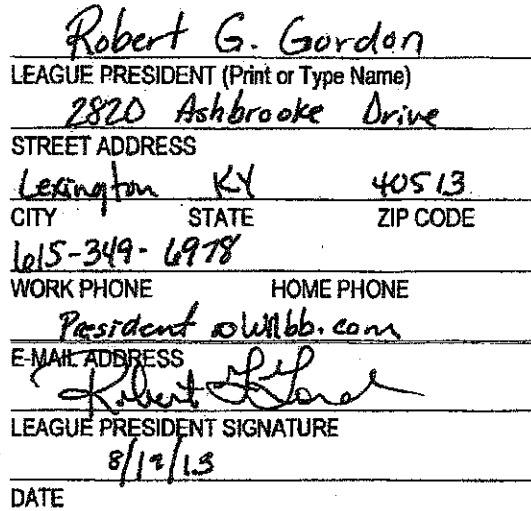 Robert G. Gordon
LEAGUE PRESIDENT (Print or Type Name)
2820 Ashbrooke Drive
STREET ADDRESS
Lexington KY 40513
CITY STATE ZIP CODE
615-349-6978
WORK PHONE HOME PHONE
President
E-MAIL ADDRESS
Robert
LEAGUE PRESIDENT SIGNATURE
8/19/13
DATE